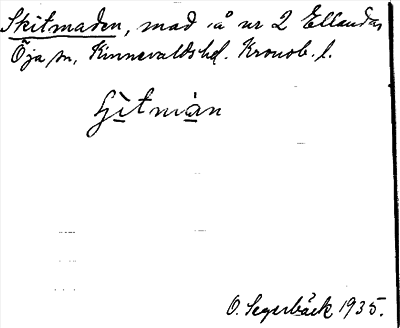 Skitmaden, mad å nr 2 Ellanda,
Öja sn, Kinnevalds hd. Kronob. l.
O. Segerbäck 1935.